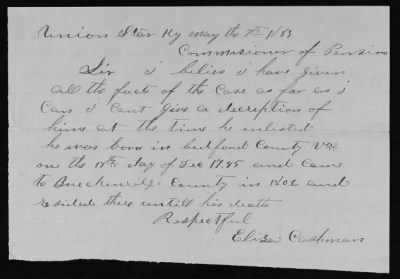 Union Star Ky may the 7th 1883
Commisioner of Pension
Sir i belive i have given
all the facts of the case as far as i
can i cant give a decreption of
him at the time he inlisted
he was born in bedford County Va
on the 18th day of Dec 1785 and came
to Breckenridg County in 1802 and
resided there untill his death
Respectful
Eliza Cashman